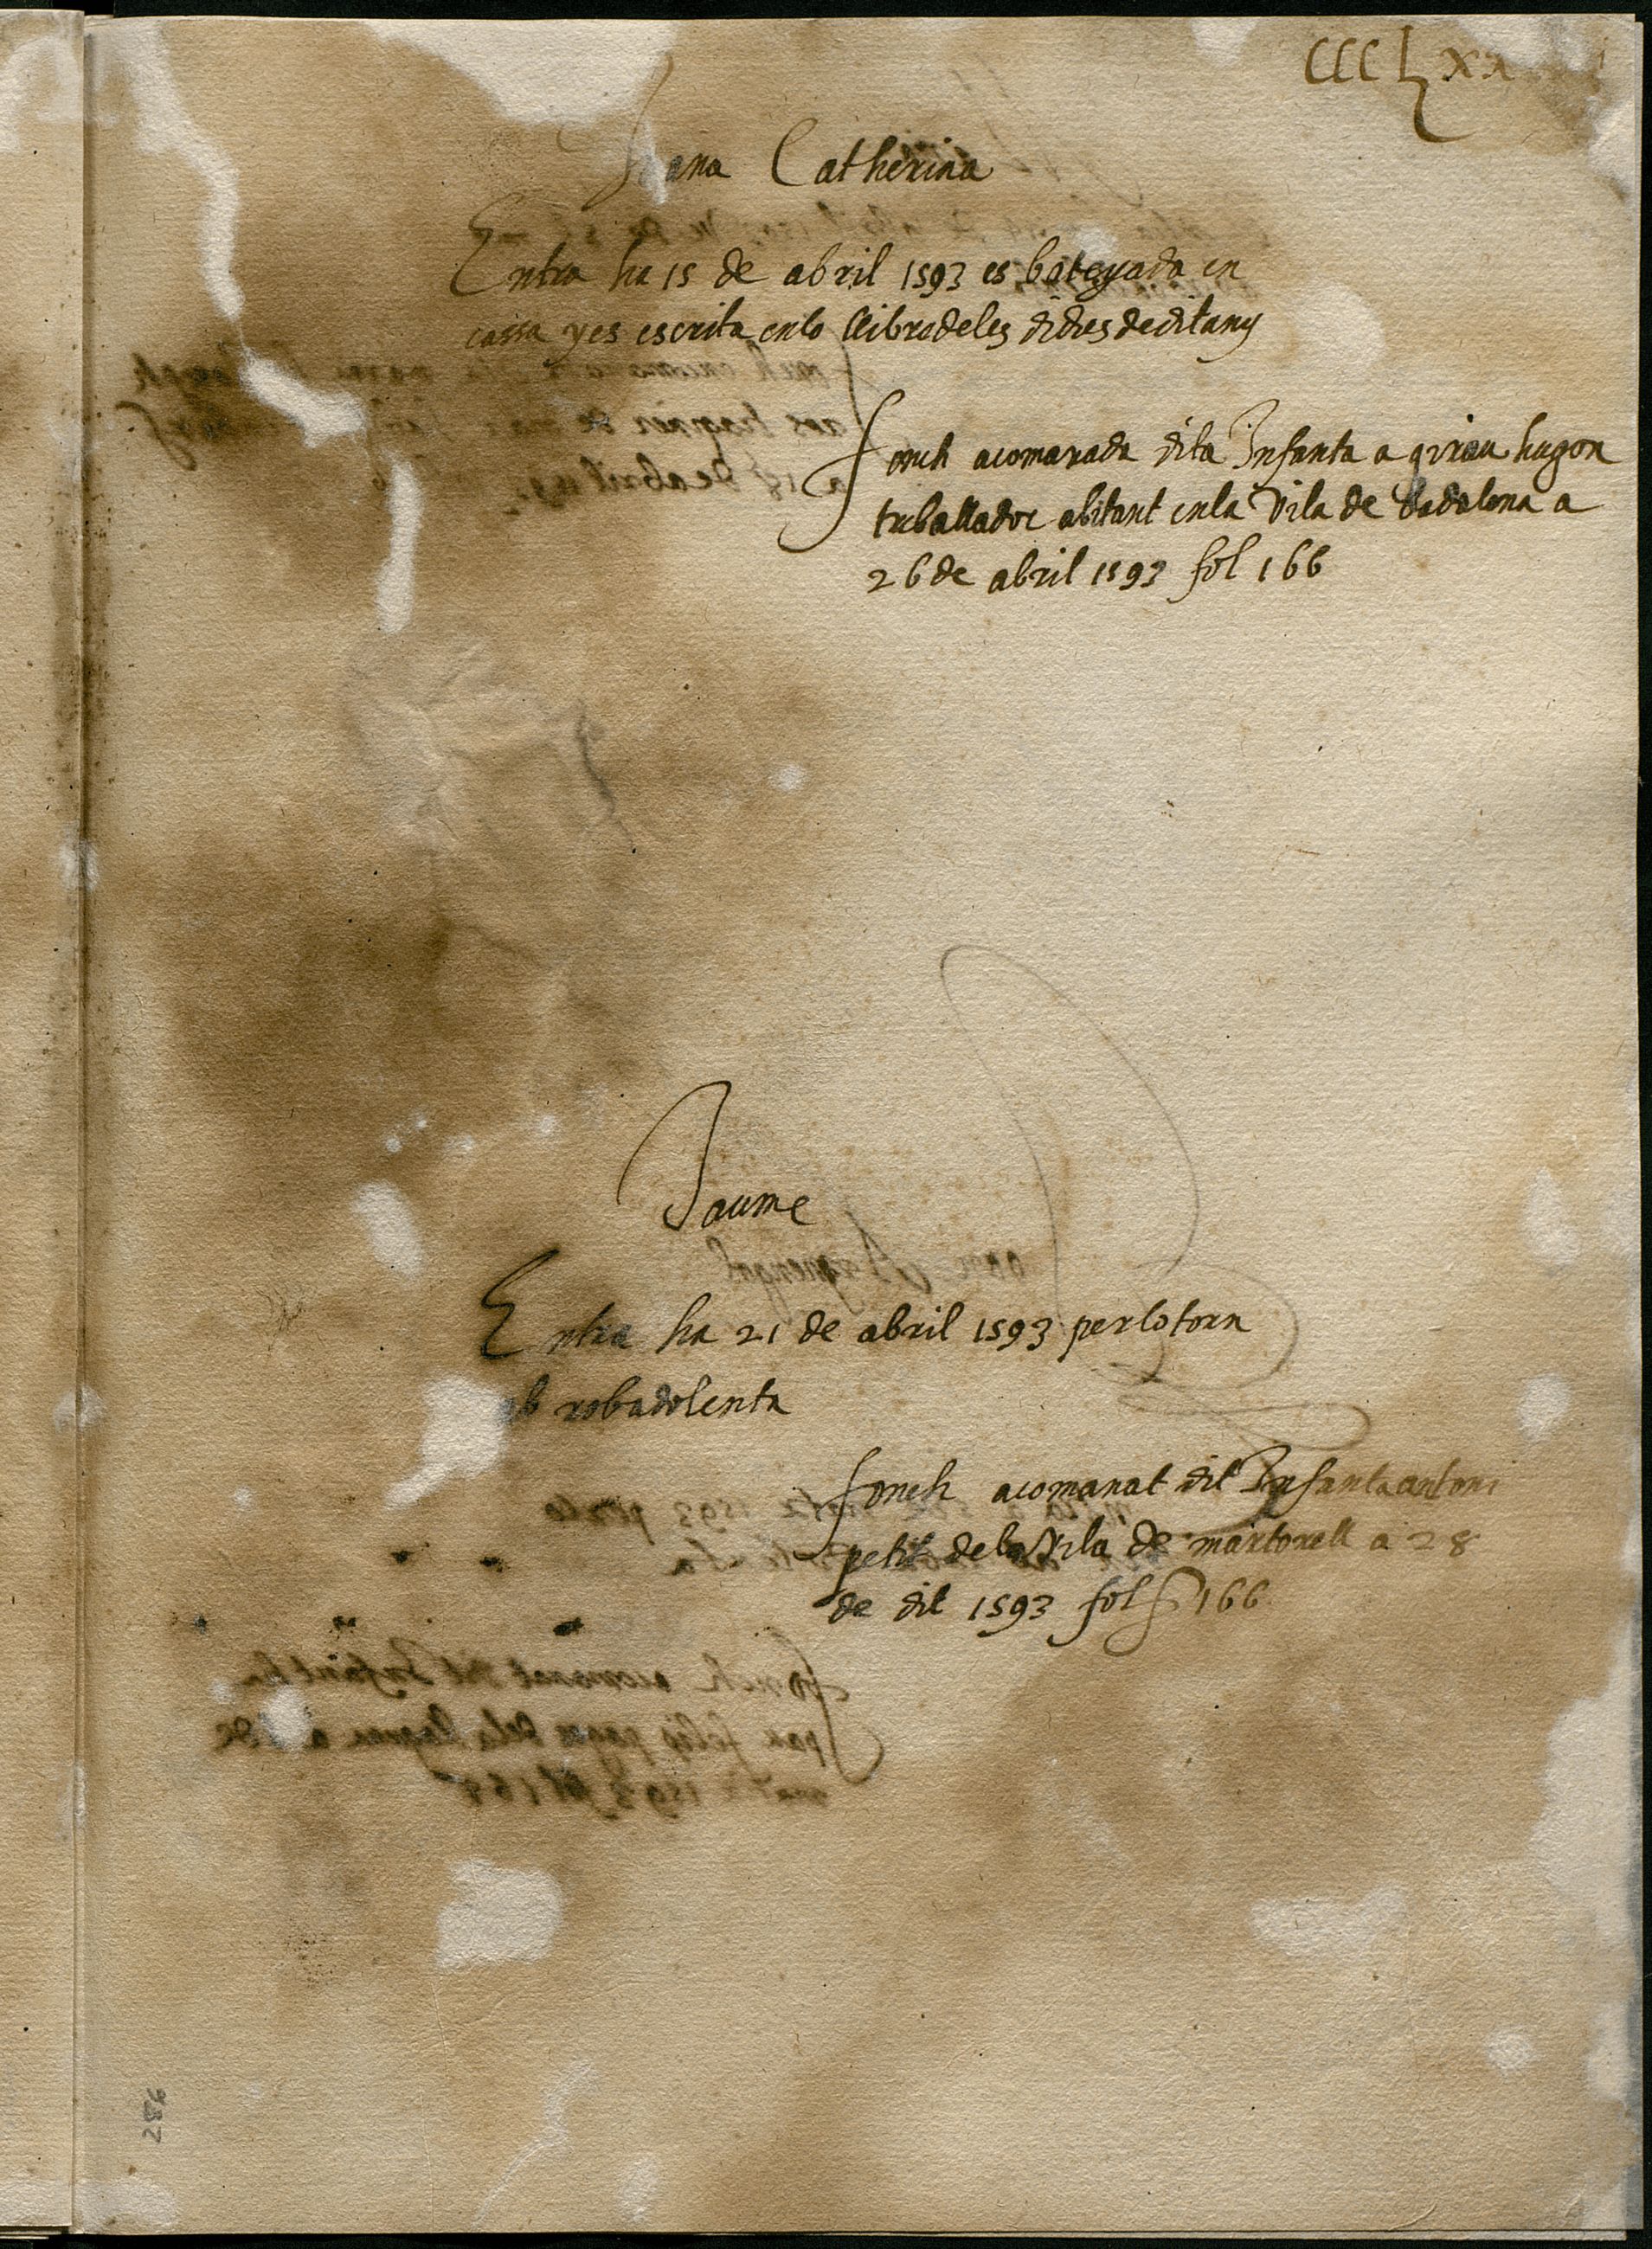 CCCLxx
Joana Catherina
Entra ha 15 de abril 1593 es bategada en
cassa y es escrita en lo llibre de les dides de dit any
fonch acomanada dita Infanta a grrau hugon
treballador abitant en la vila de badalona a
26 de abril 1593 fol 166
Jaume
Entra ha 21 de abril 1593 per lo torn
ab roba dolenta
fonch acomanat dit Infant a antoni
petit de la vila de martorell a 28
de dit 1593 fol 166
286